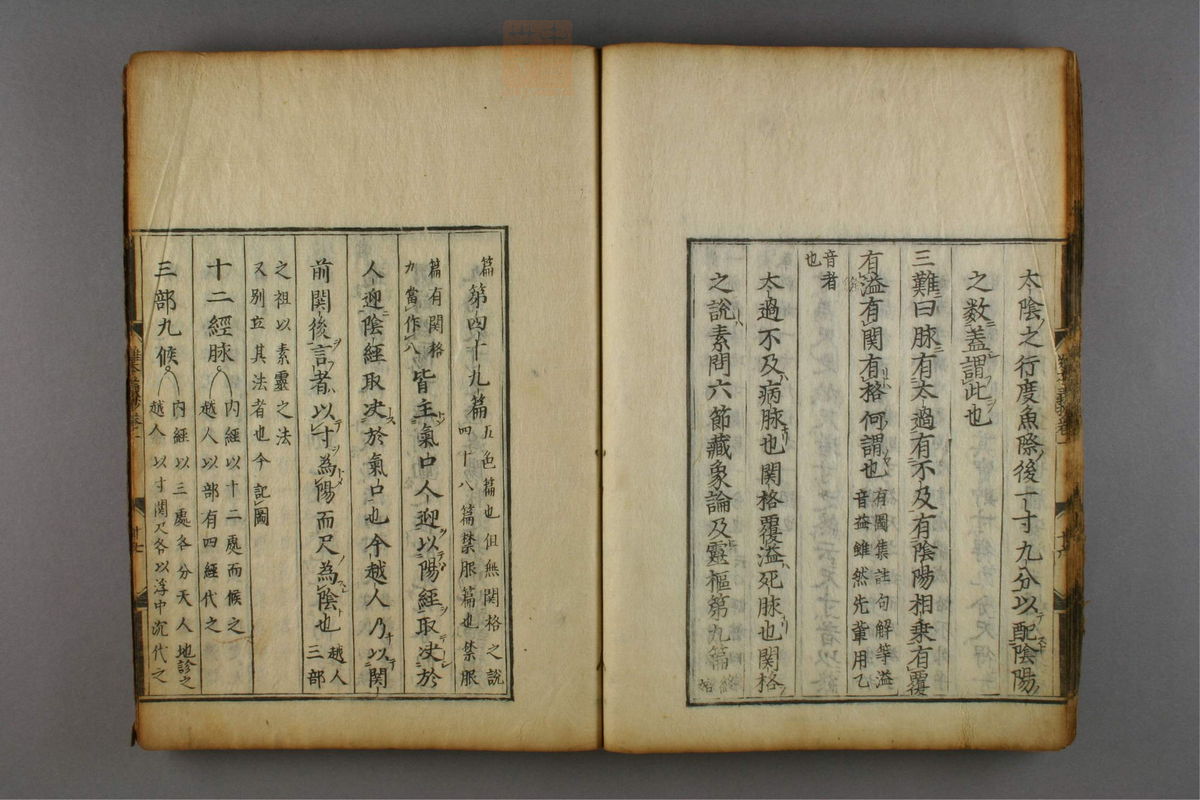 太陰之行度魚際後一寸九分以配陰陽
之数蓋謂此也
三難曰脉有太過有不及有陰陽相乗有覆
有溢有関有格何謂也
有圖集註句解等溢
音益雖然先輩用乙
音者
也
太過不及病脉也関格覆溢死脉也関格
之説素問六節藏象論及靈樞第九篇
終
始
篇
第四十九篇
五色篇也但無関格之説
四十八篇禁服篇也禁服
篇有関格
九當作八
皆主氣口人迎以陽経取决於
人迎陰経取决於氣口也今越人乃以関
前関後言者以寸為陽而尺為陰也
越人
三部
之祖以素靈之法
又別立其法者也今記圖
十二經脉
内經以十二處而候之
越人以部有四經代之
三部九候
内經以三處各分天人地診之
越人以寸関尺各以浮中沉代之
十七